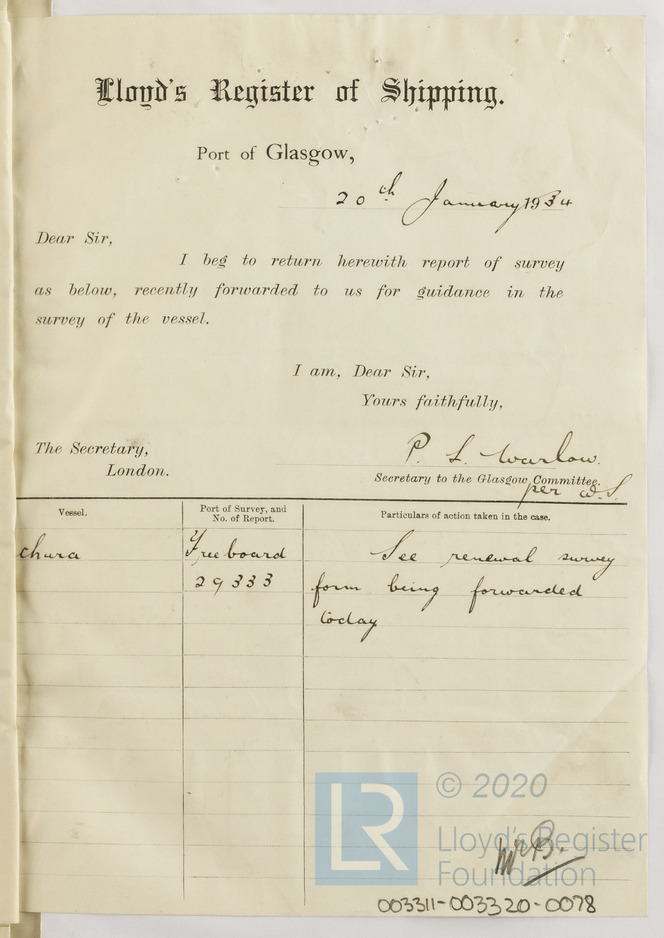 Lloyd's Register of Shipping.
Port of Glasgow,
20th January 1934
Dear Sir,
I beg to return herewith report of survey
as below, recently forwarded to us for guidance in the
survey of the vessel.
I am, Dear Sir,
Yours faithfully,
The Secretary,
London.
P. L. Warlow.
Secretary to the Glasgow Committee.
per W.S.
Vessel.
Port of Survey, and
No. of Report.
Particulars of action taken in the case.
chura
Freeboard
29333
See renewal survey
form being forwarded
today
LR
© 2020
Lloyd's Register
Foundation
003311-003320-0078